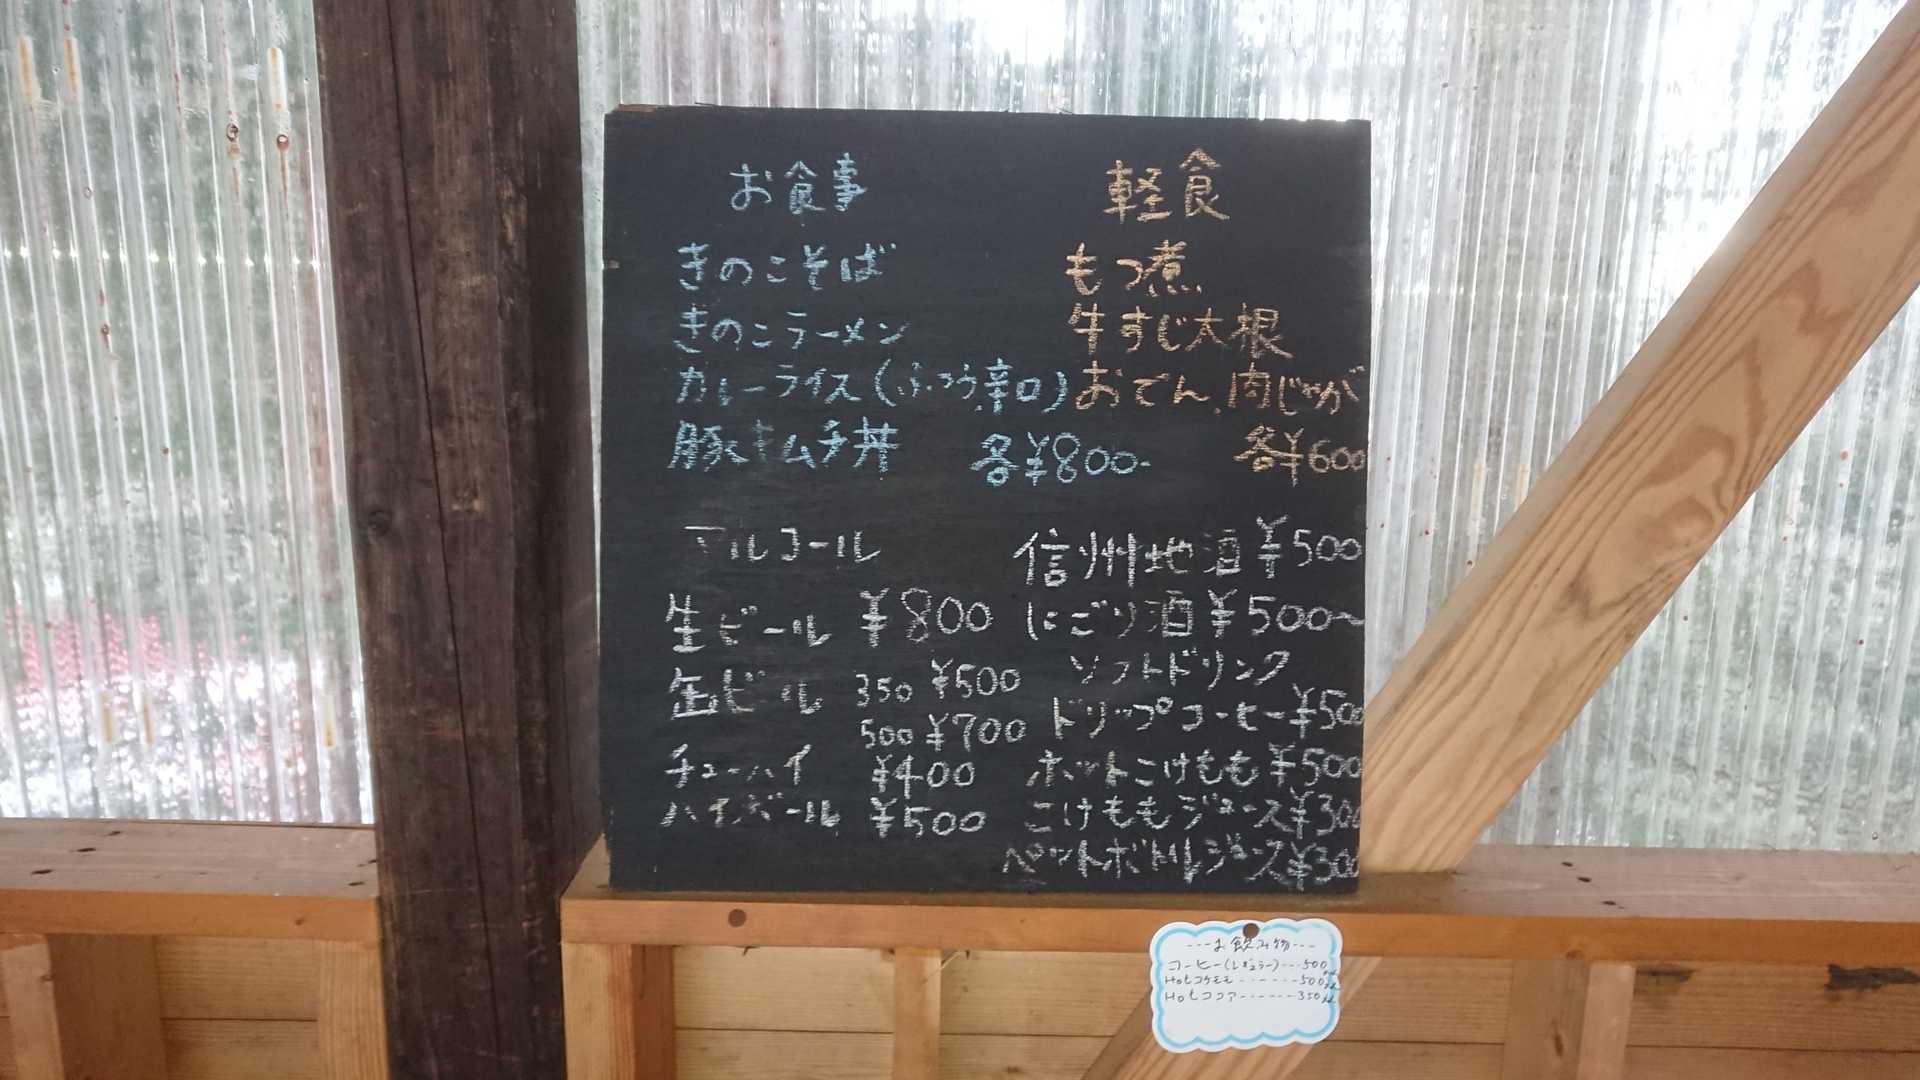 お食事
きのこそば
きのこラーメン
カレーライス(ふつう,辛口)
豚キムチ丼 各¥800-
軽食
もつ煮
牛すじ大根
おでん,肉じゃが
各¥600
アルコール
生ビール ¥800
缶ビール 350 ¥500
500 ¥700
チューハイ ¥400
ハイボール ¥500
信州地酒 ¥500
にごり酒 ¥500~
ソフトドリンク
ドリップコーヒー ¥500
ホットこけもも ¥500
こけももジュース ¥300
ペットボトルジュース ¥300
---お飲み物---
コーヒー(レギュラー)---500
Hotコケモモ-------500
Hotココア------350